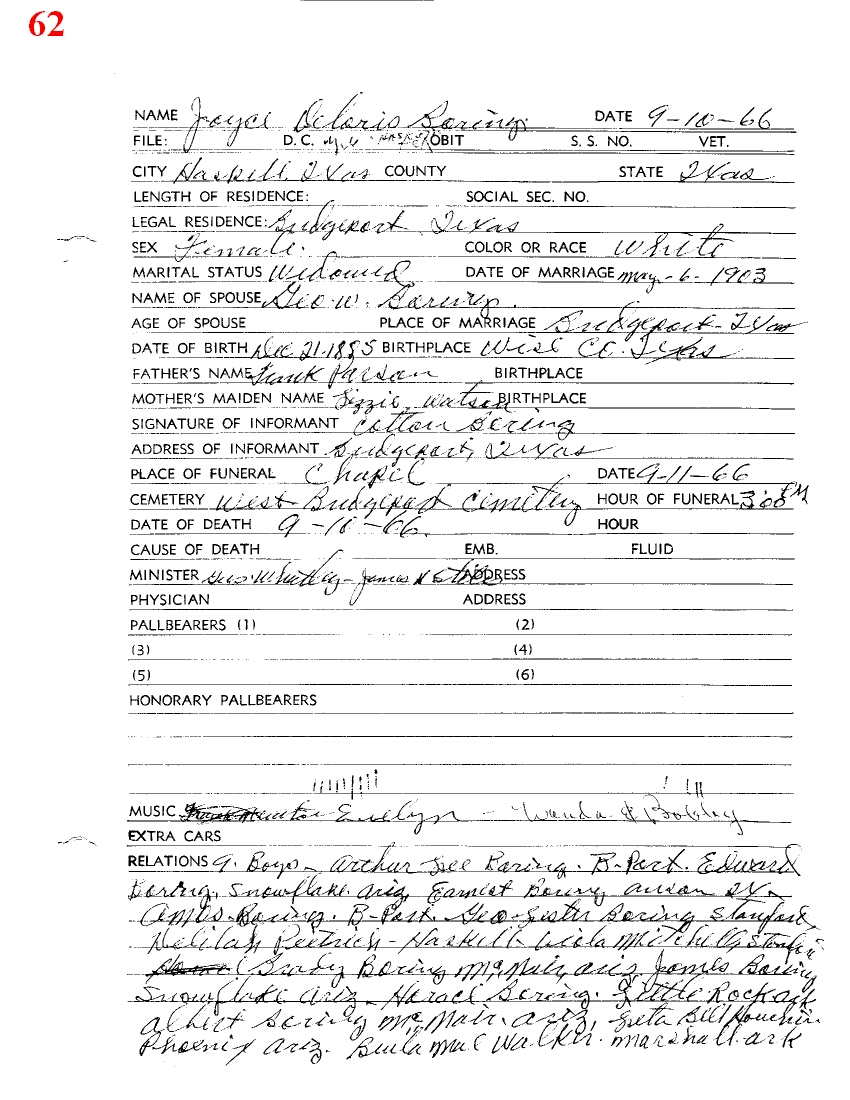 62
NAME Joyce Deloris Boring DATE 9-10-66
FILE: D.C. OBIT S. S. NO. VET.
CITY Haskell Texas COUNTY STATE Texas
LENGTH OF RESIDENCE: SOCIAL SEC. NO.
LEGAL RESIDENCE: Bridgeport, Texas
SEX Female. COLOR OR RACE White
MARITAL STATUS Widowed DATE OF MARRIAGE may-6-1903
NAME OF SPOUSE Geo. W. Boring
AGE OF SPOUSE PLACE OF MARRIAGE Bridgeport-Texas
DATE OF BIRTH Dec 21-1885 BIRTHPLACE Wise Co. Texas
FATHER'S NAME Frank Parson BIRTHPLACE
MOTHER'S MAIDEN NAME Lizzie Watson BIRTHPLACE
SIGNATURE OF INFORMANT Cotton Boring
ADDRESS OF INFORMANT Bridgeport, Texas
PLACE OF FUNERAL Chapel DATE 9-11-66
CEMETERY West Bridgeport Cemetery HOUR OF FUNERAL 3:00 PM
DATE OF DEATH 9-10-66. HOUR
CAUSE OF DEATH EMB. FLUID
MINISTER Geo. Whitley - James ADDRESS
PHYSICIAN ADDRESS
PALLBEARERS (1) (2)
(3) (4)
(5) (6)
HONORARY PALLBEARERS
MUSIC Evelyn - Wanda & Bobby
EXTRA CARS
RELATIONS 9. Boys - Arthur Lee Boring. B-Port. Edward
Boring, Snowflake ariz, Earnest Boring anson TX-
Amos Boring. B-Port. Geo-Lister Boring Stamford,
Delilah Peetrich - Haskell. Viola Mitchell,
Brady Boring McNair, ariz, James Boring
Snowflake Ariz - Horace Boring. Little Rock ark
albert Boring McNair. ariz, Greta Bell Houchin
Phoenix Ariz. Beula Mae Walker. marshall. ark